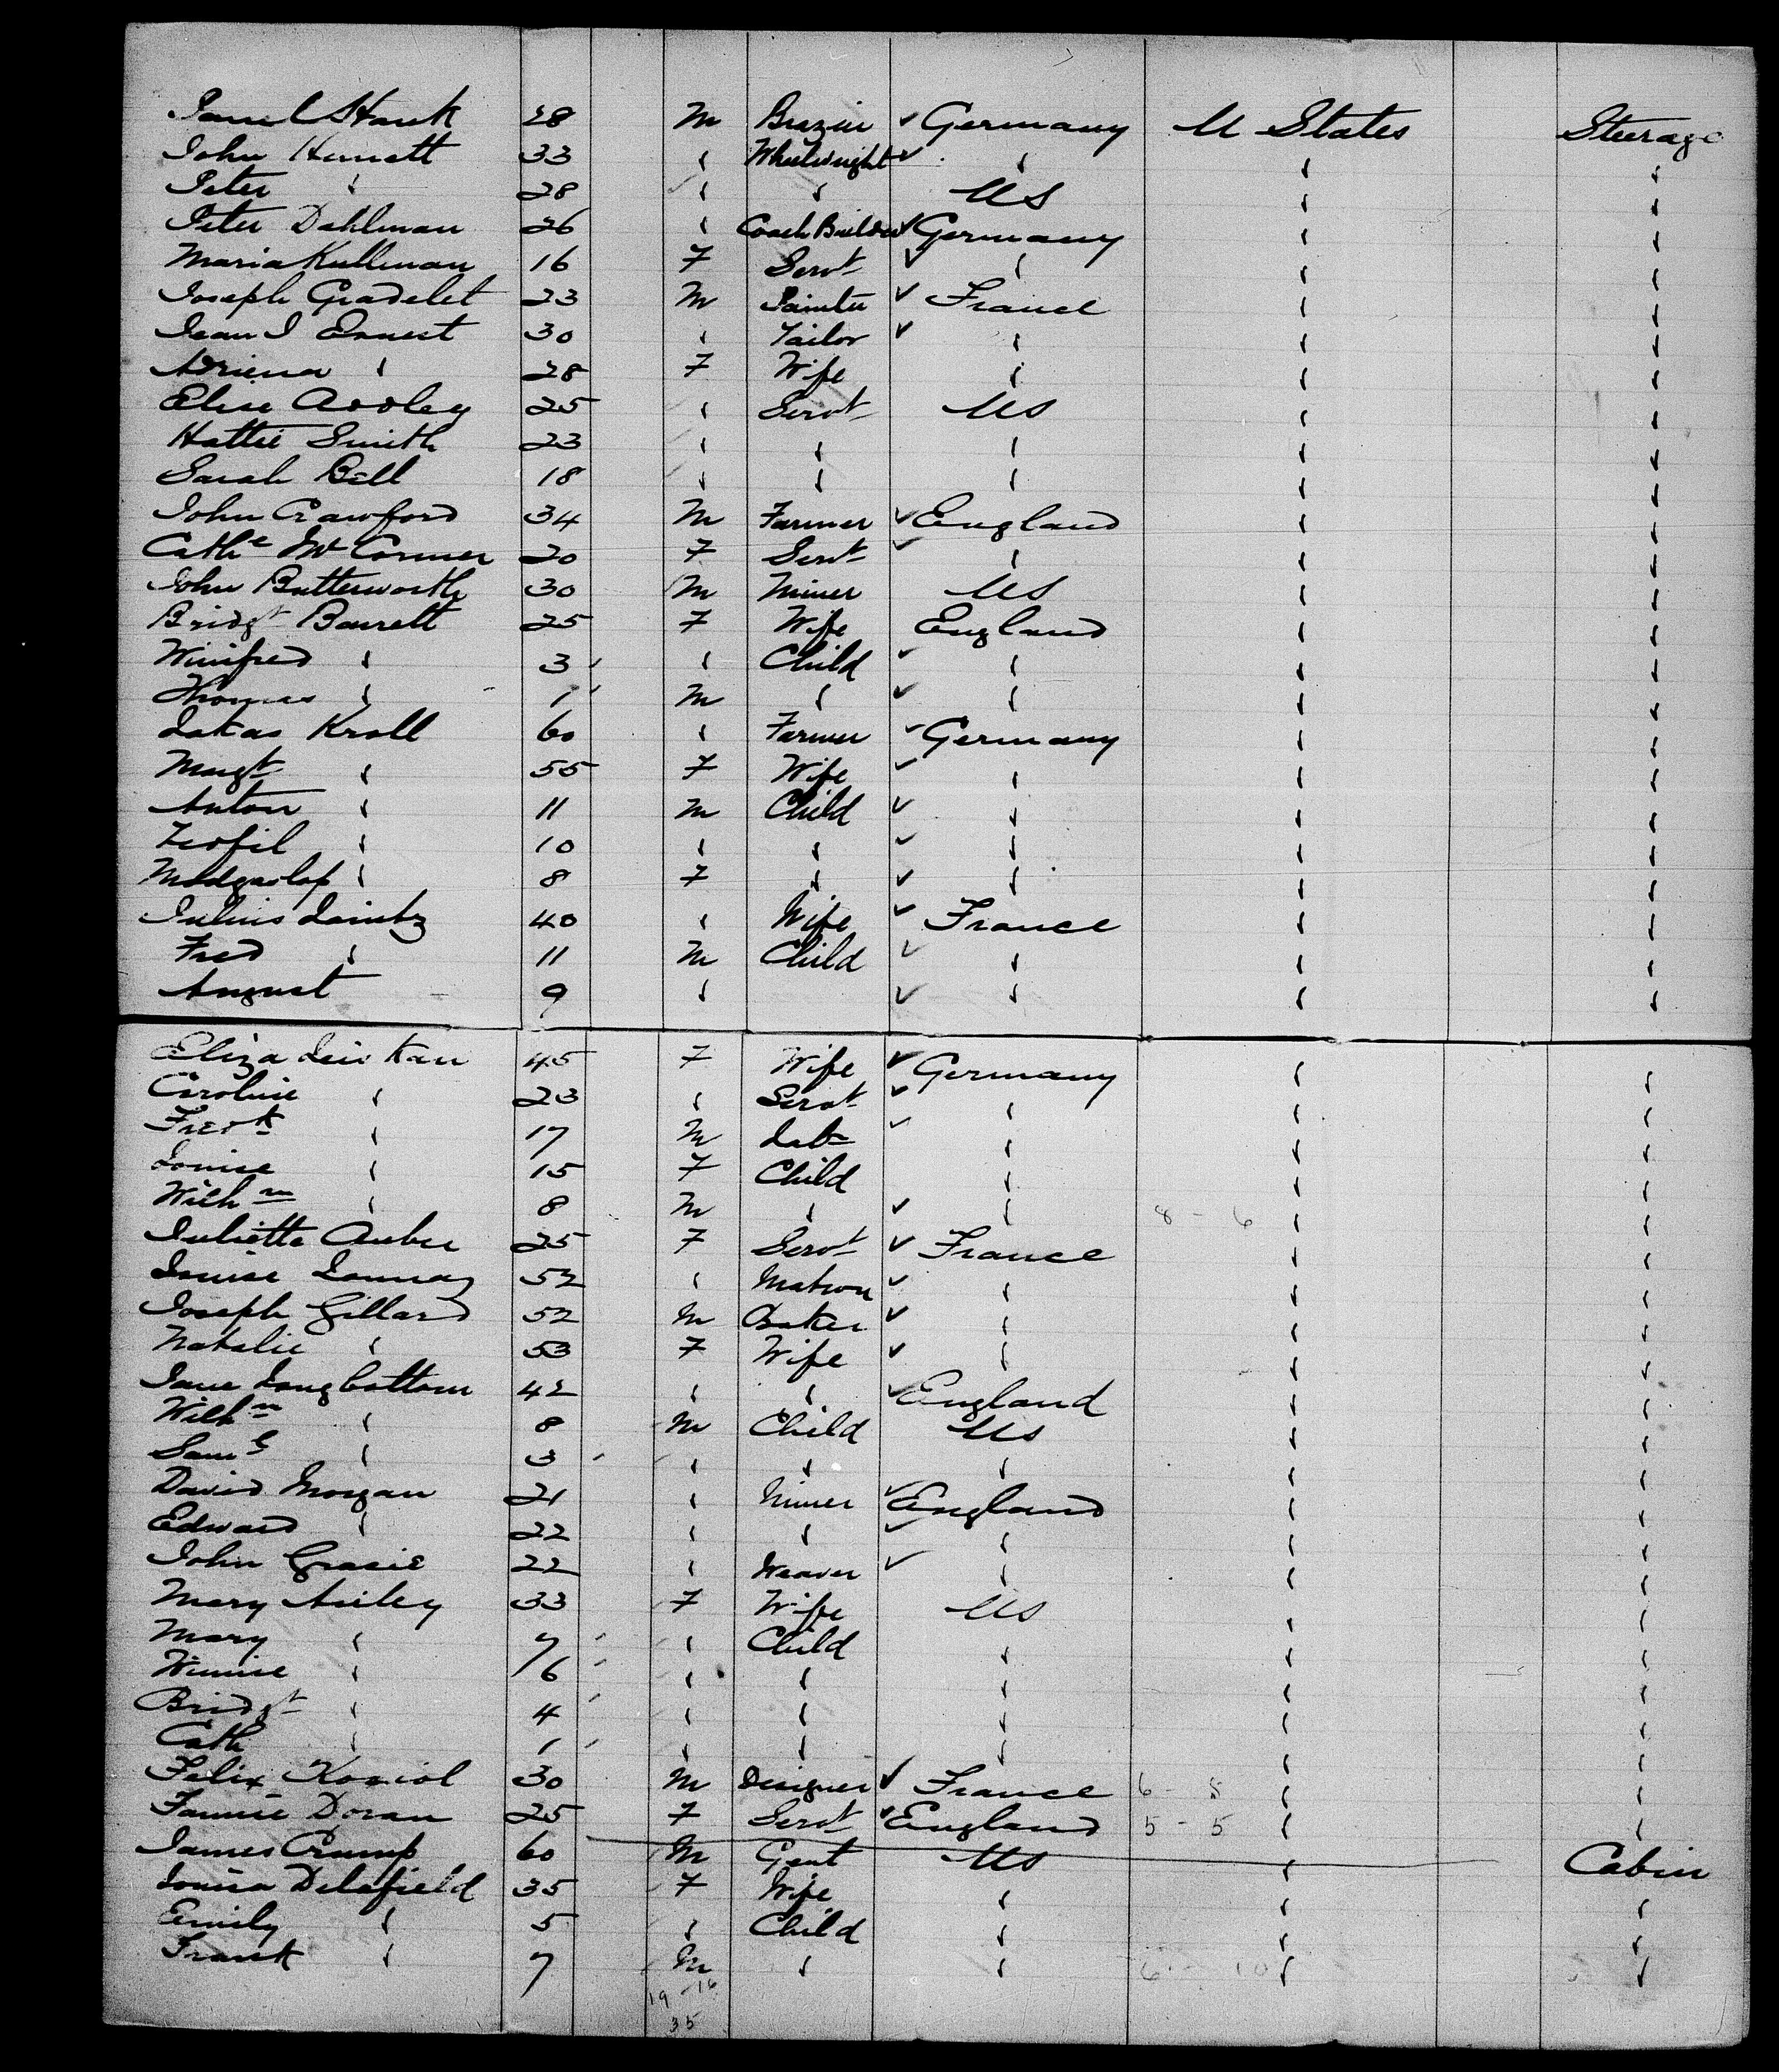 Hauk 28 M Brazier ✓ Germany U States Steerage
John 33 " Wheelwright ✓ " " "
Peter " 28 " " US " "
Peter Dahlman 26 " Coach Builder ✓ Germany " "
Maria Kullman 16 F Servt ✓ " " "
Joseph Gradelet 23 M Painter ✓ France " "
Jean J Ernest 30 " Tailor ✓ " " "
Adriena " 28 F Wife " " "
Elise 25 " Servt US " "
Hattie Smith 23 " " " " "
Sarah Bell 18 " " " " "
John Crawford 34 M Farmer ✓ England " "
Cathe 20 F Servt ✓ " " "
John Butterworth 30 M Miner US " "
Bridgt Barrett 25 F Wife England " "
Winifred " 3 " Child ✓ " " "
Thomas " 1 M " ✓ " " "
Lukas Kroll 60 " Farmer ✓ Germany " "
Margt " 55 F Wife ✓ " " "
Anton " 11 M Child ✓ " " "
" 10 " " ✓ " " "
" 8 F " ✓ " " "
Julius 40 " Wife ✓ France " "
Fred " 11 M Child ✓ " " "
August 9 " ✓ " " "
Eliza 45 F Wife ✓ Germany " "
Caroline " 23 " Servt ✓ " " "
Fredk " 17 M Labr ✓ " " "
Louise " 15 F Child " " "
Wilhm " 8 M " ✓ " 8 - 6 " "
Juliette Auber 25 F Servt ✓ France " "
Louise 52 " Matron ✓ " " "
Joseph Gillard 52 M Baker ✓ " " "
Natalie " 53 F Wife ✓ " " "
Jane Longbottom 42 " " ✓ England " "
Wilhm " 8 M Child US " "
Saml " 3 " " " " "
David Morgan 21 " Miner ✓ England " "
Edward " 22 " " ✓ " " "
John Grasie 22 " Weaver ✓ " " "
Mary 33 F Wife US " "
Mary " 7 " Child " " "
Winnie " 6 " " " " "
Bridgt " 4 " " " " "
Cath " 1 " " " " "
Felix Koziol 30 M Designer ✓ France 6 - 8 " "
Fannie Doran 25 F Servt ✓ England 5 - 5 " "
James Crump 60 M Gent US " Cabin
Louisa Delafield 35 F Wife " " "
Emily " 5 " Child " " "
Frank " 7 M " " 6 - 10 " "
19 - 16
35